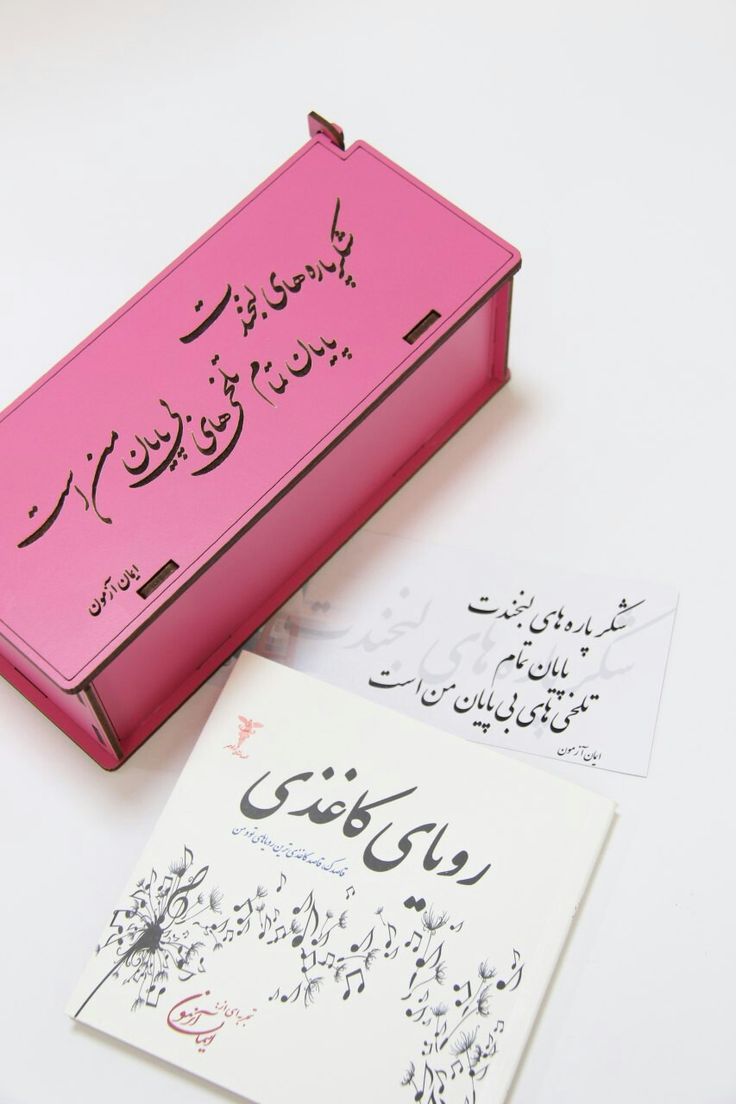 شکرپاره های لبخندت
پایان تمام
تلخی های بی پایان من است
ایمان آزمون
شکرپاره های لبخندت
پایان تمام
تلخی های بی پایان من است
ایمان آزمون
شکرپاره های لبخندت
رویای کاغذی
قاصدک، قاصد کاغذی ترین رویاهای تو و من
تجربه ای از:
ایمان آزمون